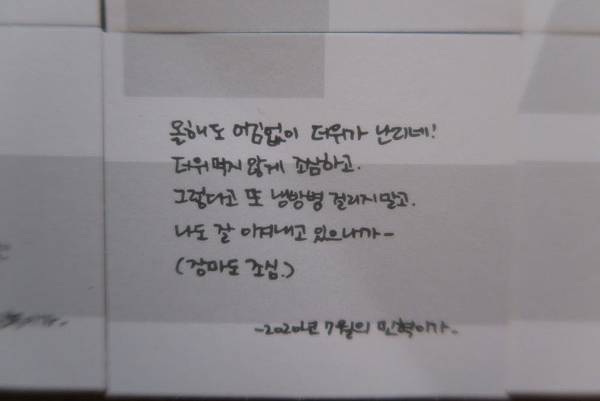 올해도 어김없이 더위가 난리네!
더위먹지 않게 조심하고.
그렇다고 또 냉방병 걸리지말고.
나도 잘 이겨내고 있으니까-
(장마도 조심.)
-2020년 7월의 민혁이가.